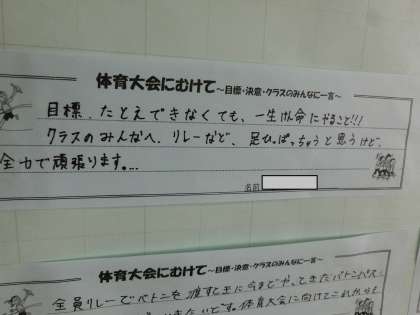 体育大会にむけて～目標・決意・クラスのみんなに一言～
目標、たとえできなくても、一生けん命にやること!!!
クラスのみんなへ、リレーなど、足ひっぱっちゃうと思うけど、
全力で頑張ります。...
名前
体育大会にむけて～目標・決意・クラスのみんなに一言～
全員リレーでバトンを渡すときに今までやってきたバトンパス
いきたいです。体育大会に向けてこれからも